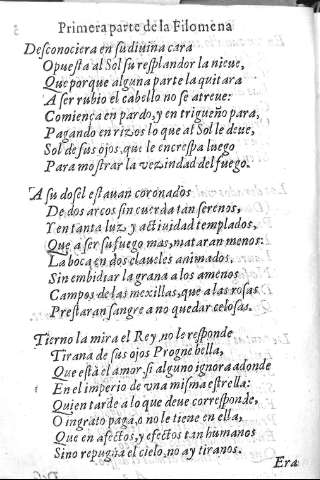 Primera parte de la Filomena
Desconociera en su diuina cara
Opuesta al Sol su resplandor la nieue,
Que porque alguna parte la quitara
A ser rubio el cabello no se atreue:
Comiença en pardo, y en trigueño para,
Pagando en rizos lo que al Sol le deue,
Sol de sus ojos, que le encrespa luego
Para mostrar la vezindad del fuego.
A su dosel estauan coronados
De dos arcos sin cuerda tan serenos,
Y en tanta luz, y actiuidad templados,
Que a ser su fuego mas, mataran menos:
La boca en dos claueles animados,
Sin embidiar la grana a los amenos
Campos de las mexillas, que a las rosas
Prestaran sangre a no quedar celosas.
Tierno la mira el Rey, no le responde
Tirana de sus ojos Progne bella,
Que està el amor, si alguno ignora adonde
En el imperio de vna misma estrella:
Quien tarde a lo que deue corresponde,
O ingrato paga, o no le tiene en ella,
Que en afectos, y efectos tan humanos
Sino repugna el cielo, no ay tiranos.
Era